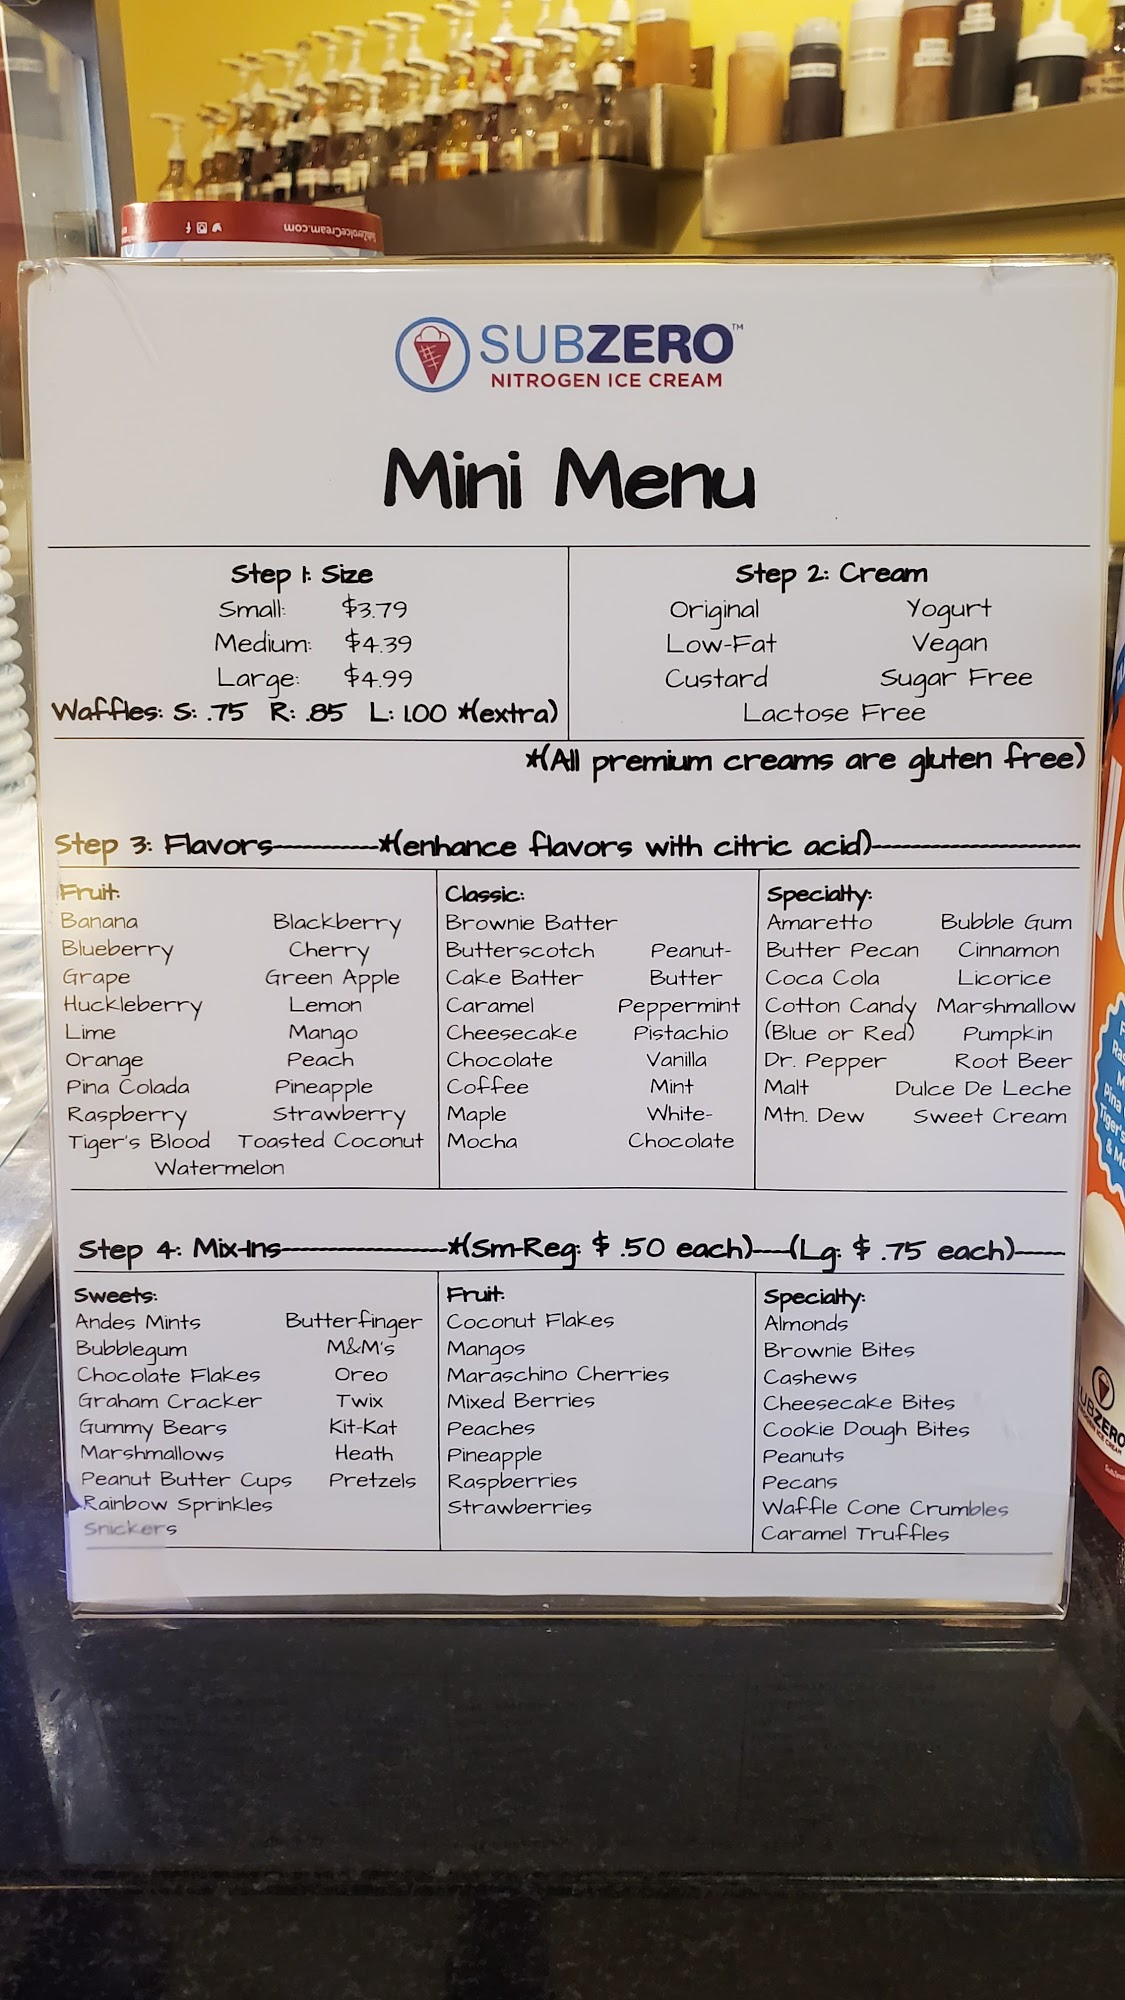 SubZeroIceCream.com
SUBZERO™
NITROGEN ICE CREAM
Mini Menu
Step 1: Size
Small: $3.79
Medium: $4.39
Large: $4.99
Waffles: S: .75 R: .85 L: 1.00 *(extra)
Step 2: Cream
Original Yogurt
Low-Fat Vegan
Custard Sugar Free
Lactose Free
*(All premium creams are gluten free)
Step 3: Flavors----------*(enhance flavors with citric acid)--------------------
Fruit:
Banana Blackberry
Blueberry Cherry
Grape Green Apple
Huckleberry Lemon
Lime Mango
Orange Peach
Pina Colada Pineapple
Raspberry Strawberry
Tiger's Blood Toasted Coconut
Watermelon
Classic:
Brownie Batter
Butterscotch Peanut-
Cake Batter Butter
Caramel Peppermint
Cheesecake Pistachio
Chocolate Vanilla
Coffee Mint
Maple White-
Mocha Chocolate
Specialty:
Amaretto Bubble Gum
Butter Pecan Cinnamon
Coca Cola Licorice
Cotton Candy Marshmallow
(Blue or Red) Pumpkin
Dr. Pepper Root Beer
Malt Dulce De Leche
Mtn. Dew Sweet Cream
Step 4: Mix-Ins----------------*(Sm-Reg: $ .50 each)---(Lg: $ .75 each)-----
Sweets:
Andes Mints Butterfinger
Bubblegum M&M's
Chocolate Flakes Oreo
Graham Cracker Twix
Gummy Bears Kit-Kat
Marshmallows Heath
Peanut Butter Cups Pretzels
Rainbow Sprinkles
Snickers
Fruit:
Coconut Flakes
Mangos
Maraschino Cherries
Mixed Berries
Peaches
Pineapple
Raspberries
Strawberries
Specialty:
Almonds
Brownie Bites
Cashews
Cheesecake Bites
Cookie Dough Bites
Peanuts
Pecans
Waffle Cone Crumbles
Caramel Truffles